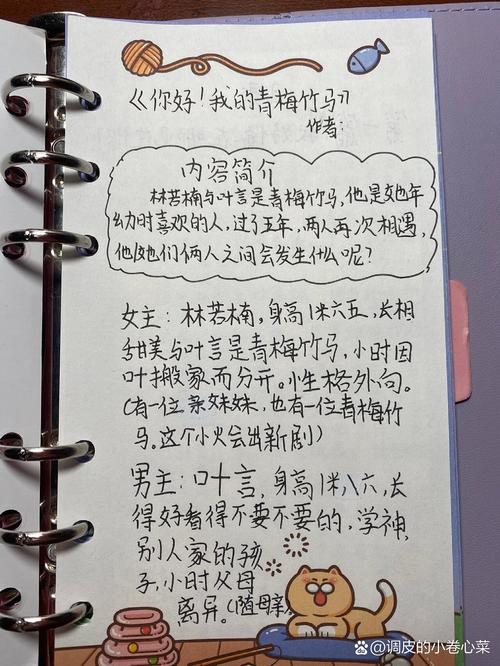 《你好！我的青梅竹马》
作者：
内容简介
林若楠与叶言是青梅竹马，他是她年
幼时喜欢的人，过了五年，两人再次相遇，
他/她们俩人之间会发生什么呢？
女主：林若楠，身高1米六五，长相
甜美与叶言是青梅竹马，小时因
叶搬家而分开。性格外向。
（有一位亲妹妹，也有一位青梅竹
马。这个小火会出新剧）
男主：叶言，身高1米八六，长
得好看得不要不要的，学神，
别人家的孩
子，小时父母
离异。（随母亲
@调皮的小卷心菜